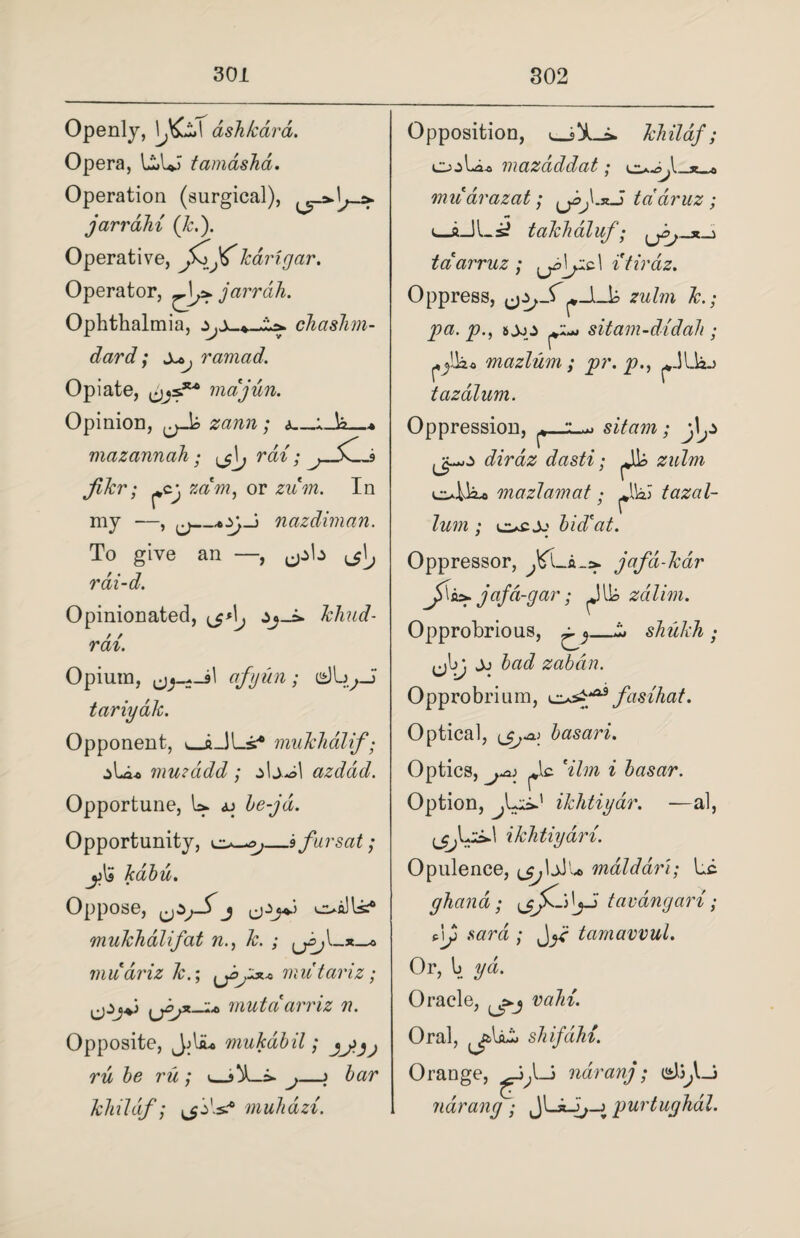 301
302
Openly, آشکارا áshkárá.
Opera, تماشا tamáshá.
Operation (surgical), جراحی
jarráhí (k.).
Operative, کاریگر kárígar.
Operator, جراح jarráh.
Ophthalmia, چشمدرد chashm-
dard; رمد ramad.
Opiate, معجون ma'jún.
Opinion, ظن zann; مظنه
mazannah; رای ráí; فکر
fikr; زعم za'm, or zu'm. In
my —, نزدمن nazdiman.
To give an —, رای دادن
rái-d.
Opinionated, خود رائی khud-
ráí.
Opium, افیون afyún; تریاك
tariyák.
Opponent, مخالف mukhálif;
مضاد muzádd; اضداد azdád.
Opportune, به جا be-já.
Opportunity, فرصت fursat;
قابو kábú.
Oppose, مخالفت نمودن و کردن
mukhálifat n., k.; معارض
mu'áriz k.; معترض mu'tariz;
متعرض نمودن muta'arriz n.
Opposite, مقابل mukábil; روبرو
rú be rú; بر خلاف bar
khiláf; محاذی muhází.
Opposition, خلاف khiláf;
مضادت mazáddat; معارضت
mu'árazat; تعارض ta'áruz;
تخالف takháluf; تعرض
ta'arruz; اعتراض i'tiráz.
Oppress, ظلم کردن zulm k.;
pa. p., ستم دیده sitam-dídah;
مظلوم mazlúm; pr. p., تظالم
tazálum.
Oppression, ستم sitam; دراز
دستی diráz dasti; ظلم zulm
مظلمت mazlamat; تظلم tazal-
lum; بدعت bid'at.
Oppressor, جفاکار jafá-kár
جفاگر jafá-gar; ظالم zálim.
Opprobrious, شوخ shúkh;
بد زبان bad zabán.
Opprobrium, فصیحت fasíhat.
Optical, بصری basari.
Optics, علم بصر 'ilm i basar.
Option, اختیار ikhtiyár. —al,
اختیاری ikhtiyárí.
Opulence, مالداری máldárí; غنا
ghaná; توانگری tavángarí;
سراء sará; تمول tamavvul.
Or, یا yá.
Oracle, وحی vahí.
Oral, شفاهی shifáhí.
Orange, نارنج náranj; نارنگ
nárang; پرتغال purtughál.